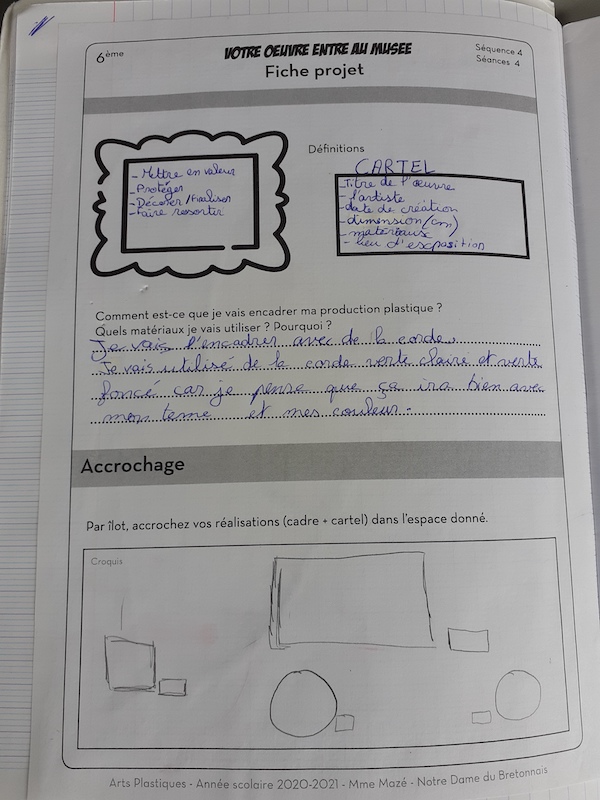 6ème
VOTRE OEUVRE ENTRE AU MUSEE
Séquence 4
Séances 4
Fiche projet
- Mettre en valeur
- Protéger
- Décorer/Finalison
- Faire ressortir
Définitions
CARTEL
- Titre de l'œuvre
- l'artiste
- date de création
- dimension (cm)
- matéreaux
- lieu d'exposition
Comment est-ce que je vais encadrer ma production plastique ?
Quels matériaux je vais utiliser ? Pourquoi ?
Je vais l'encadrer avec de la corde.
Je vais utilisé de la corde verte claire et verte
foncé car je pense que ça ira bien avec
mon teme et mes couleur.
Accrochage
Par îlot, accrochez vos réalisations (cadre + cartel) dans l'espace donné.
Croquis
Arts Plastiques - Année scolaire 2020-2021 - Mme Mazé - Notre Dame du Bretonnais